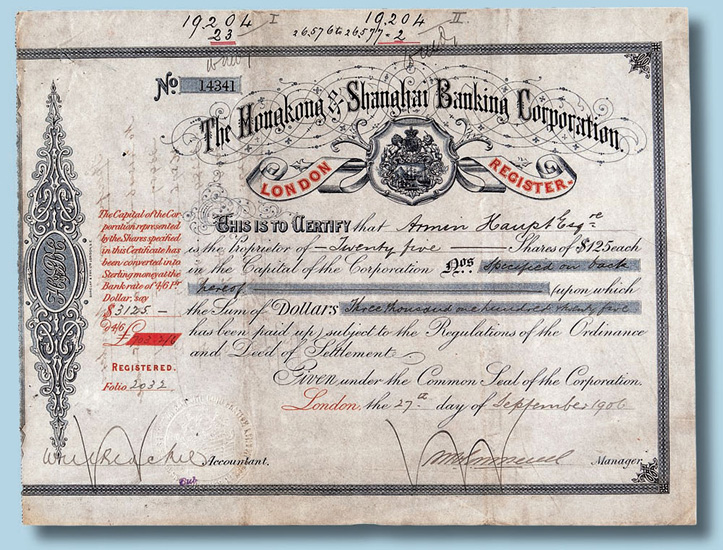 19204 I 19204 II
23 26576 to 26577 - 2
No. 14341
The Hongkong and Shanghai Banking Corporation.
LONDON REGISTER.
THIS IS TO CERTIFY that Armin Haupt Esqre
is the Proprietor of — Twenty five — Shares of $125 each
in the Capital of the Corporation Nos. Specified on back
hereof (upon which
the Sum of Dollars Three thousand one hundred twenty five
has been paid up) subject to the Regulations of the Ordinance
and Deed of Settlement.
Given under the Common Seal of the Corporation.
London, the 27th day of September 1906
The Capital of the Cor
poration represented
by the Shares specified
in this Certificate has
been converted into
Sterling money at the
Bank rate of 4/6 1st
Dollar, say
$ 3125 —
@ 4/6
£ 703.2/6
REGISTERED.
Folio 2032
Accountant.
Manager.